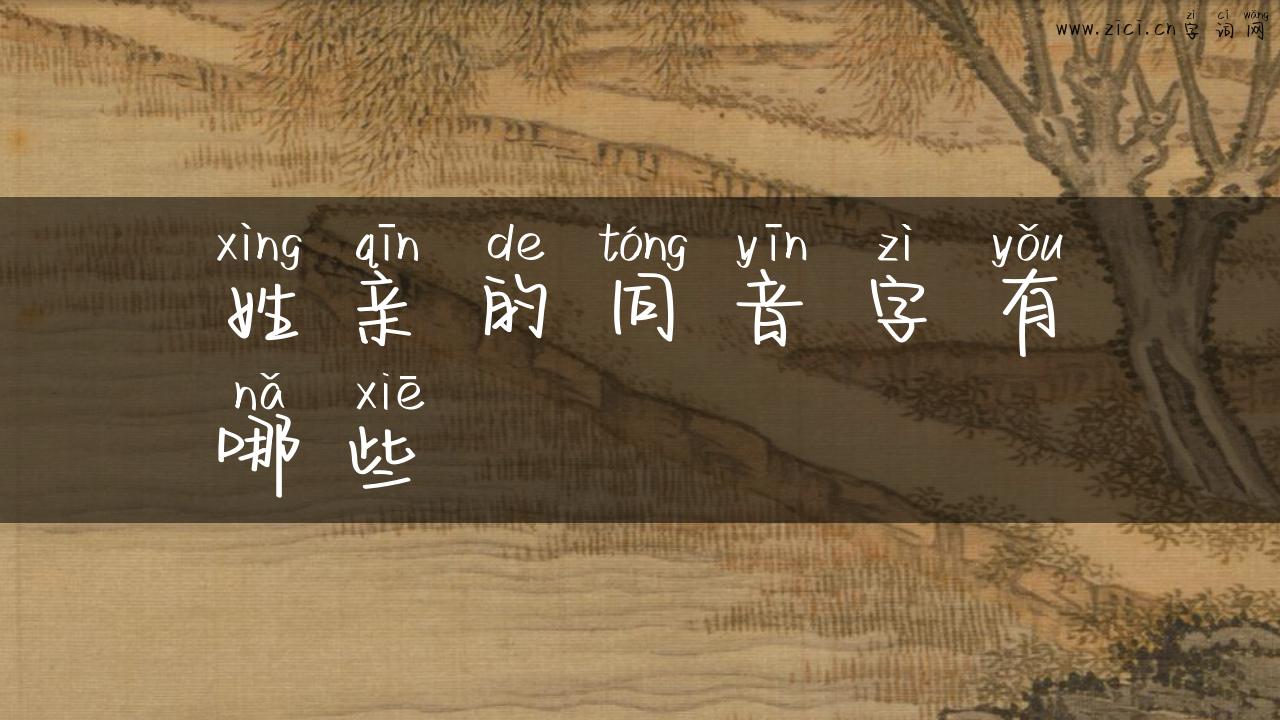 zì cí wǎng
www.zici.cn字词网
xìng qīn de tóng yīn zì yǒu
姓亲的同音字有
nǎ xiē
哪些